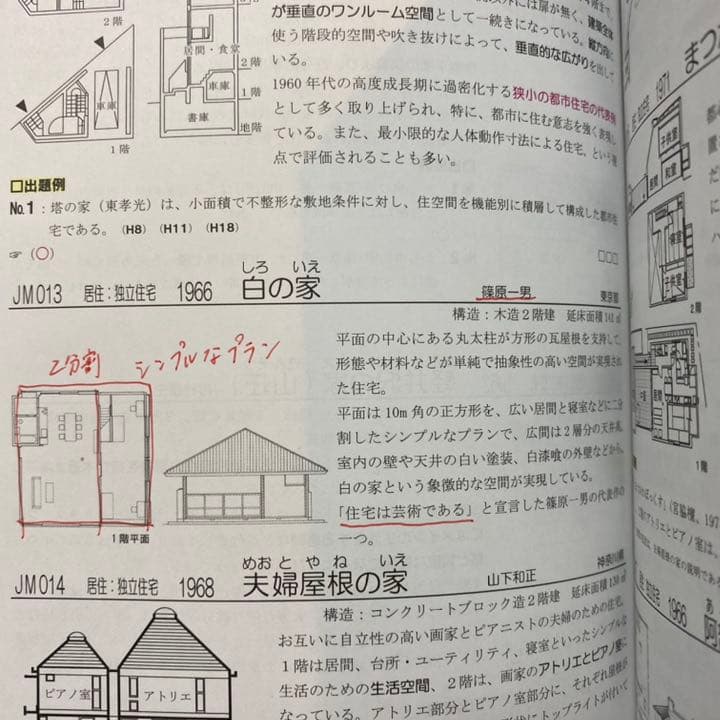 が垂直のワンルーム空間として一続きになっている。
使う階段的空間や吹き抜けによって、垂直的な広がりを出して
いる。
1960年代の高度成長期に過密化する狭小の都市住宅の代表例
として多く取り上げられ、特に、都市に住む意志を強く表現し
ている。また、最小限的な人体動作寸法による住宅、という
点で評価されることも多い。
2階
1階
居間・食堂
車庫
書庫
2階
1階
地階
□出題例
No.1：塔の家（東孝光）は、小面積で不整形な敷地条件に対し、住空間を機能別に積層して構成した都市住
宅である。（H8）（H11）（H18）
☞（○）
□□□
しろ いえ
JM013 居住：独立住宅 1966 白の家 篠原一男 東京都
構造：木造2階建 延床面積141㎡
2分割 シンプルなプラン
平面の中心にある丸太柱が方形の瓦屋根を支持して、
形態や材料などが単純で抽象性の高い空間が実現され
た住宅。
平面は10m角の正方形を、広い居間と寝室などに二分
割したシンプルなプランで、広間は2層分の天井高、
室内の壁や天井の白い塗装、白漆喰の外壁などから、
白の家という象徴的な空間が実現している。
「住宅は芸術である」と宣言した篠原一男の代表作の
一つ。
1階平面
めおとやね いえ
JM014 居住：独立住宅 1968 夫婦屋根の家 山下和正 神奈川県
構造：コンクリートブロック造2階建 延床面積130㎡
お互いに自立性の高い画家とピアニストの夫婦のための住宅。
1階は居間、台所・ユーティリティ、寝室といったシンプルな
生活のための生活空間、2階は、画家のアトリエとピアノ室に
なっている。アトリエ部分とピアノ室部分に、それぞれ屋根が
トップライトが付いて
ピアノ室
アトリエ
1971
まつ
子供室
居間
和室
寝室
子供室
2階
1階
（宮脇檀、197
のアトリエとピアノ室は、
1966